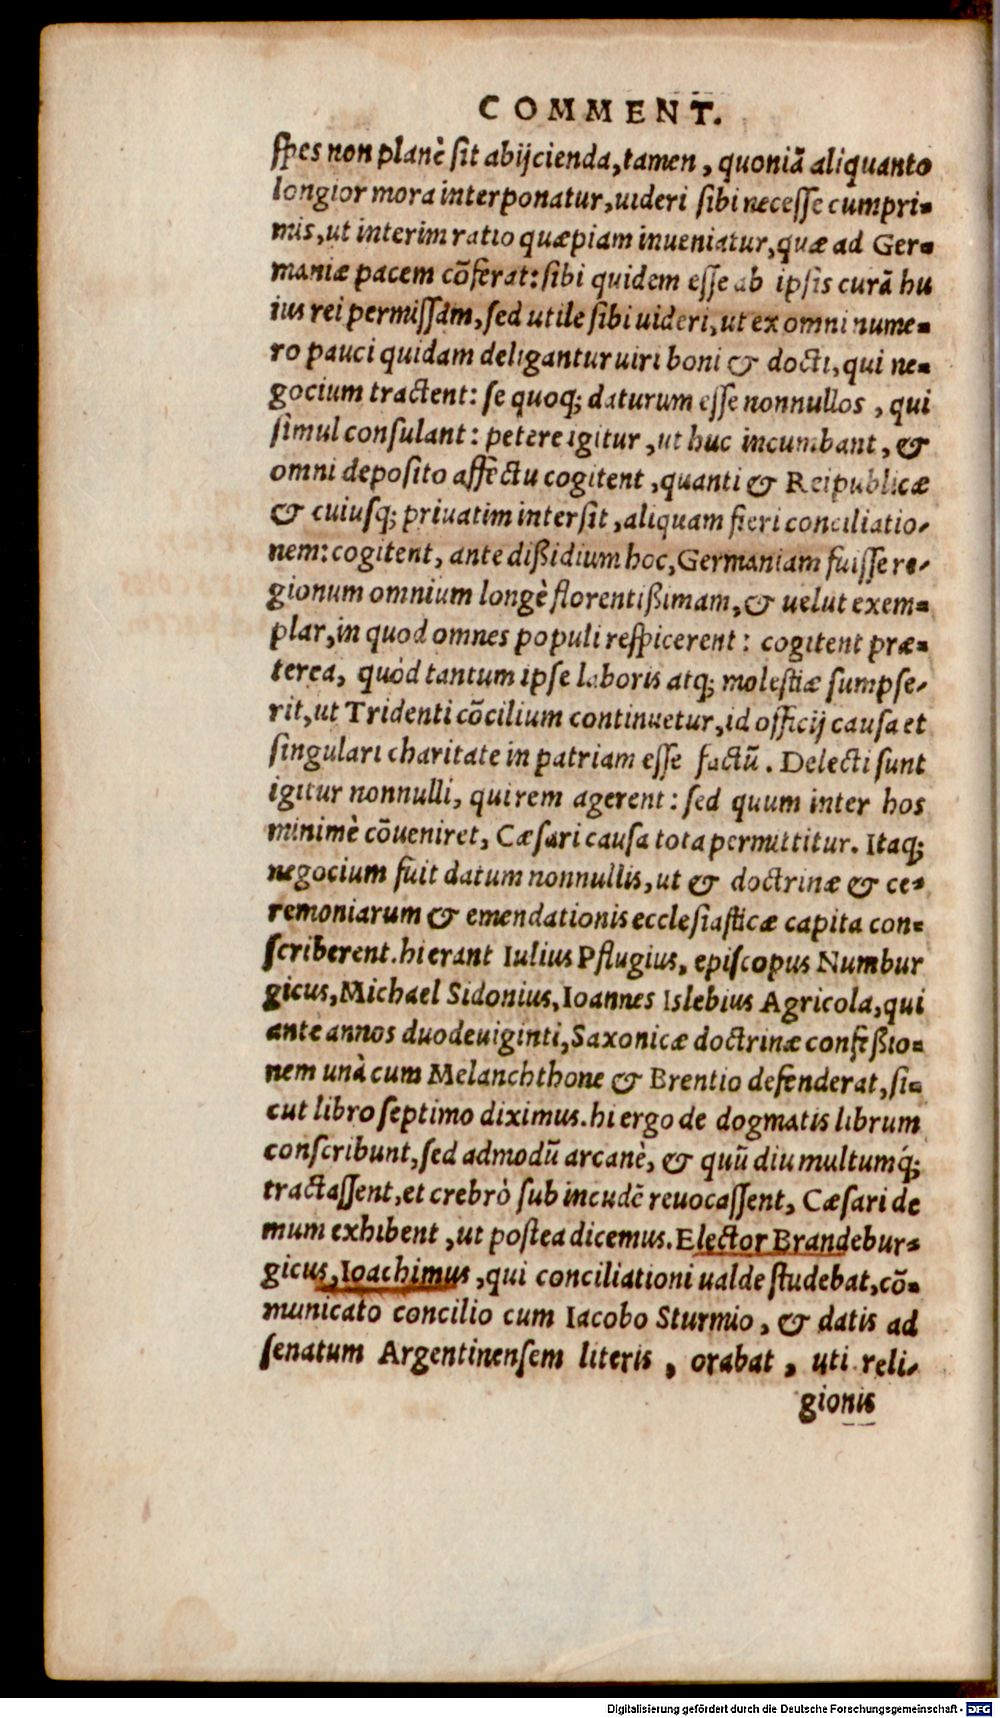 COMMENT.
ſpes non planè ſit abijcienda, tamen, quoniã aliquanto
longior mora interponatur, uideri ſibi neceſſe cumpri-
mis, ut interim ratio quæpiam inueniatur, quæ ad Ger-
maniæ pacem cõferat: ſibi quidem eſſe ab ipſis curã hu
ius rei permiſſam, ſed utile ſibi uideri, ut ex omni nume-
ro pauci quidam deligantur uiri boni & docti, qui ne-
gocium tractent: ſe quoq; daturum eſſe nonnullos, qui
ſimul conſulant: petere igitur, ut huc incumbant, &
omni depoſito affectu cogitent, quanti & Reipublicæ
& cuiuſq; priuatim interſit, aliquam fieri conciliatio-
nem: cogitent, ante dißidium hoc, Germaniam fuiſſe re-
gionum omnium longè florentißimam, & uelut exem-
plar, in quod omnes populi reſpicerent: cogitent præ-
terea, quòd tantum ipſe laboris atq; moleſtiæ ſumpſe-
rit, ut Tridenti cõcilium continuetur, id officij cauſa et
ſingulari charitate in patriam eſſe factũ. Delecti ſunt
igitur nonnulli, qui rem agerent: ſed quum inter hos
minimè cõueniret, Cæſari cauſa tota permittitur. Itaq;
negocium fuit datum nonnullis, ut & doctrinæ & ce-
remoniarum & emendationis eccleſiaſticæ capita con-
ſcriberent. hi erant Iulius Pflugius, epiſcopus Numbur
gicus, Michael Sidonius, Ioannes Islebius Agricola, qui
ante annos duodeuiginti, Saxonicæ doctrinæ confeßio-
nem unà cum Melanchthone & Brentio defenderat, ſi-
cut libro ſeptimo diximus. hi ergo de dogmatis librum
conſcribunt, ſed admodũ arcanè, & quũ diu multumq́;
tractaſſent, et crebrò ſub incudẽ reuocaſſent, Cæſari de
mum exhibent, ut poſtea dicemus. Elector Brandebur-
gicus, Ioachimus, qui conciliationi ualde ſtudebat, cõ-
municato concilio cum Iacobo Sturmio, & datis ad
ſenatum Argentinenſem literis, orabat, uti reli-
gionis
Digitalisierung gefördert durch die Deutsche Forschungsgemeinschaft - DFG